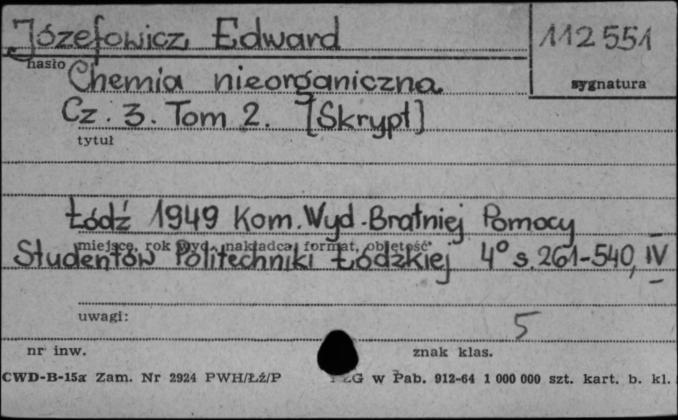 Józefowicz Edward
112551
hasło
sygnatura
Chemia nieorganiczna
Cz. 3. Tom 2. [Skrypt]
tytuł
Łódź 1949 Kom. Wyd. Bratniej Pomocy
miejsce, rok wyd., nakładca, format, objętość
Studentów Politechniki Łódzkiej 4° s. 261-540, IV
uwagi:
5
nr inw.
znak klas.
CWD-B-15a Zam. Nr 2924 PWH/Łż/P w Pab. 912-64 1 000 000 szt. kart. b. kl.